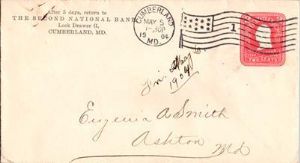 After 5 days, return to
THE SECOND NATIONAL BANK
Lock Drawer G,
CUMBERLAND, MD.
CUMBERLAND
MAY 5
MD.
1
TWO CENTS
1904
Eugenia A Smith
Ashton
Md